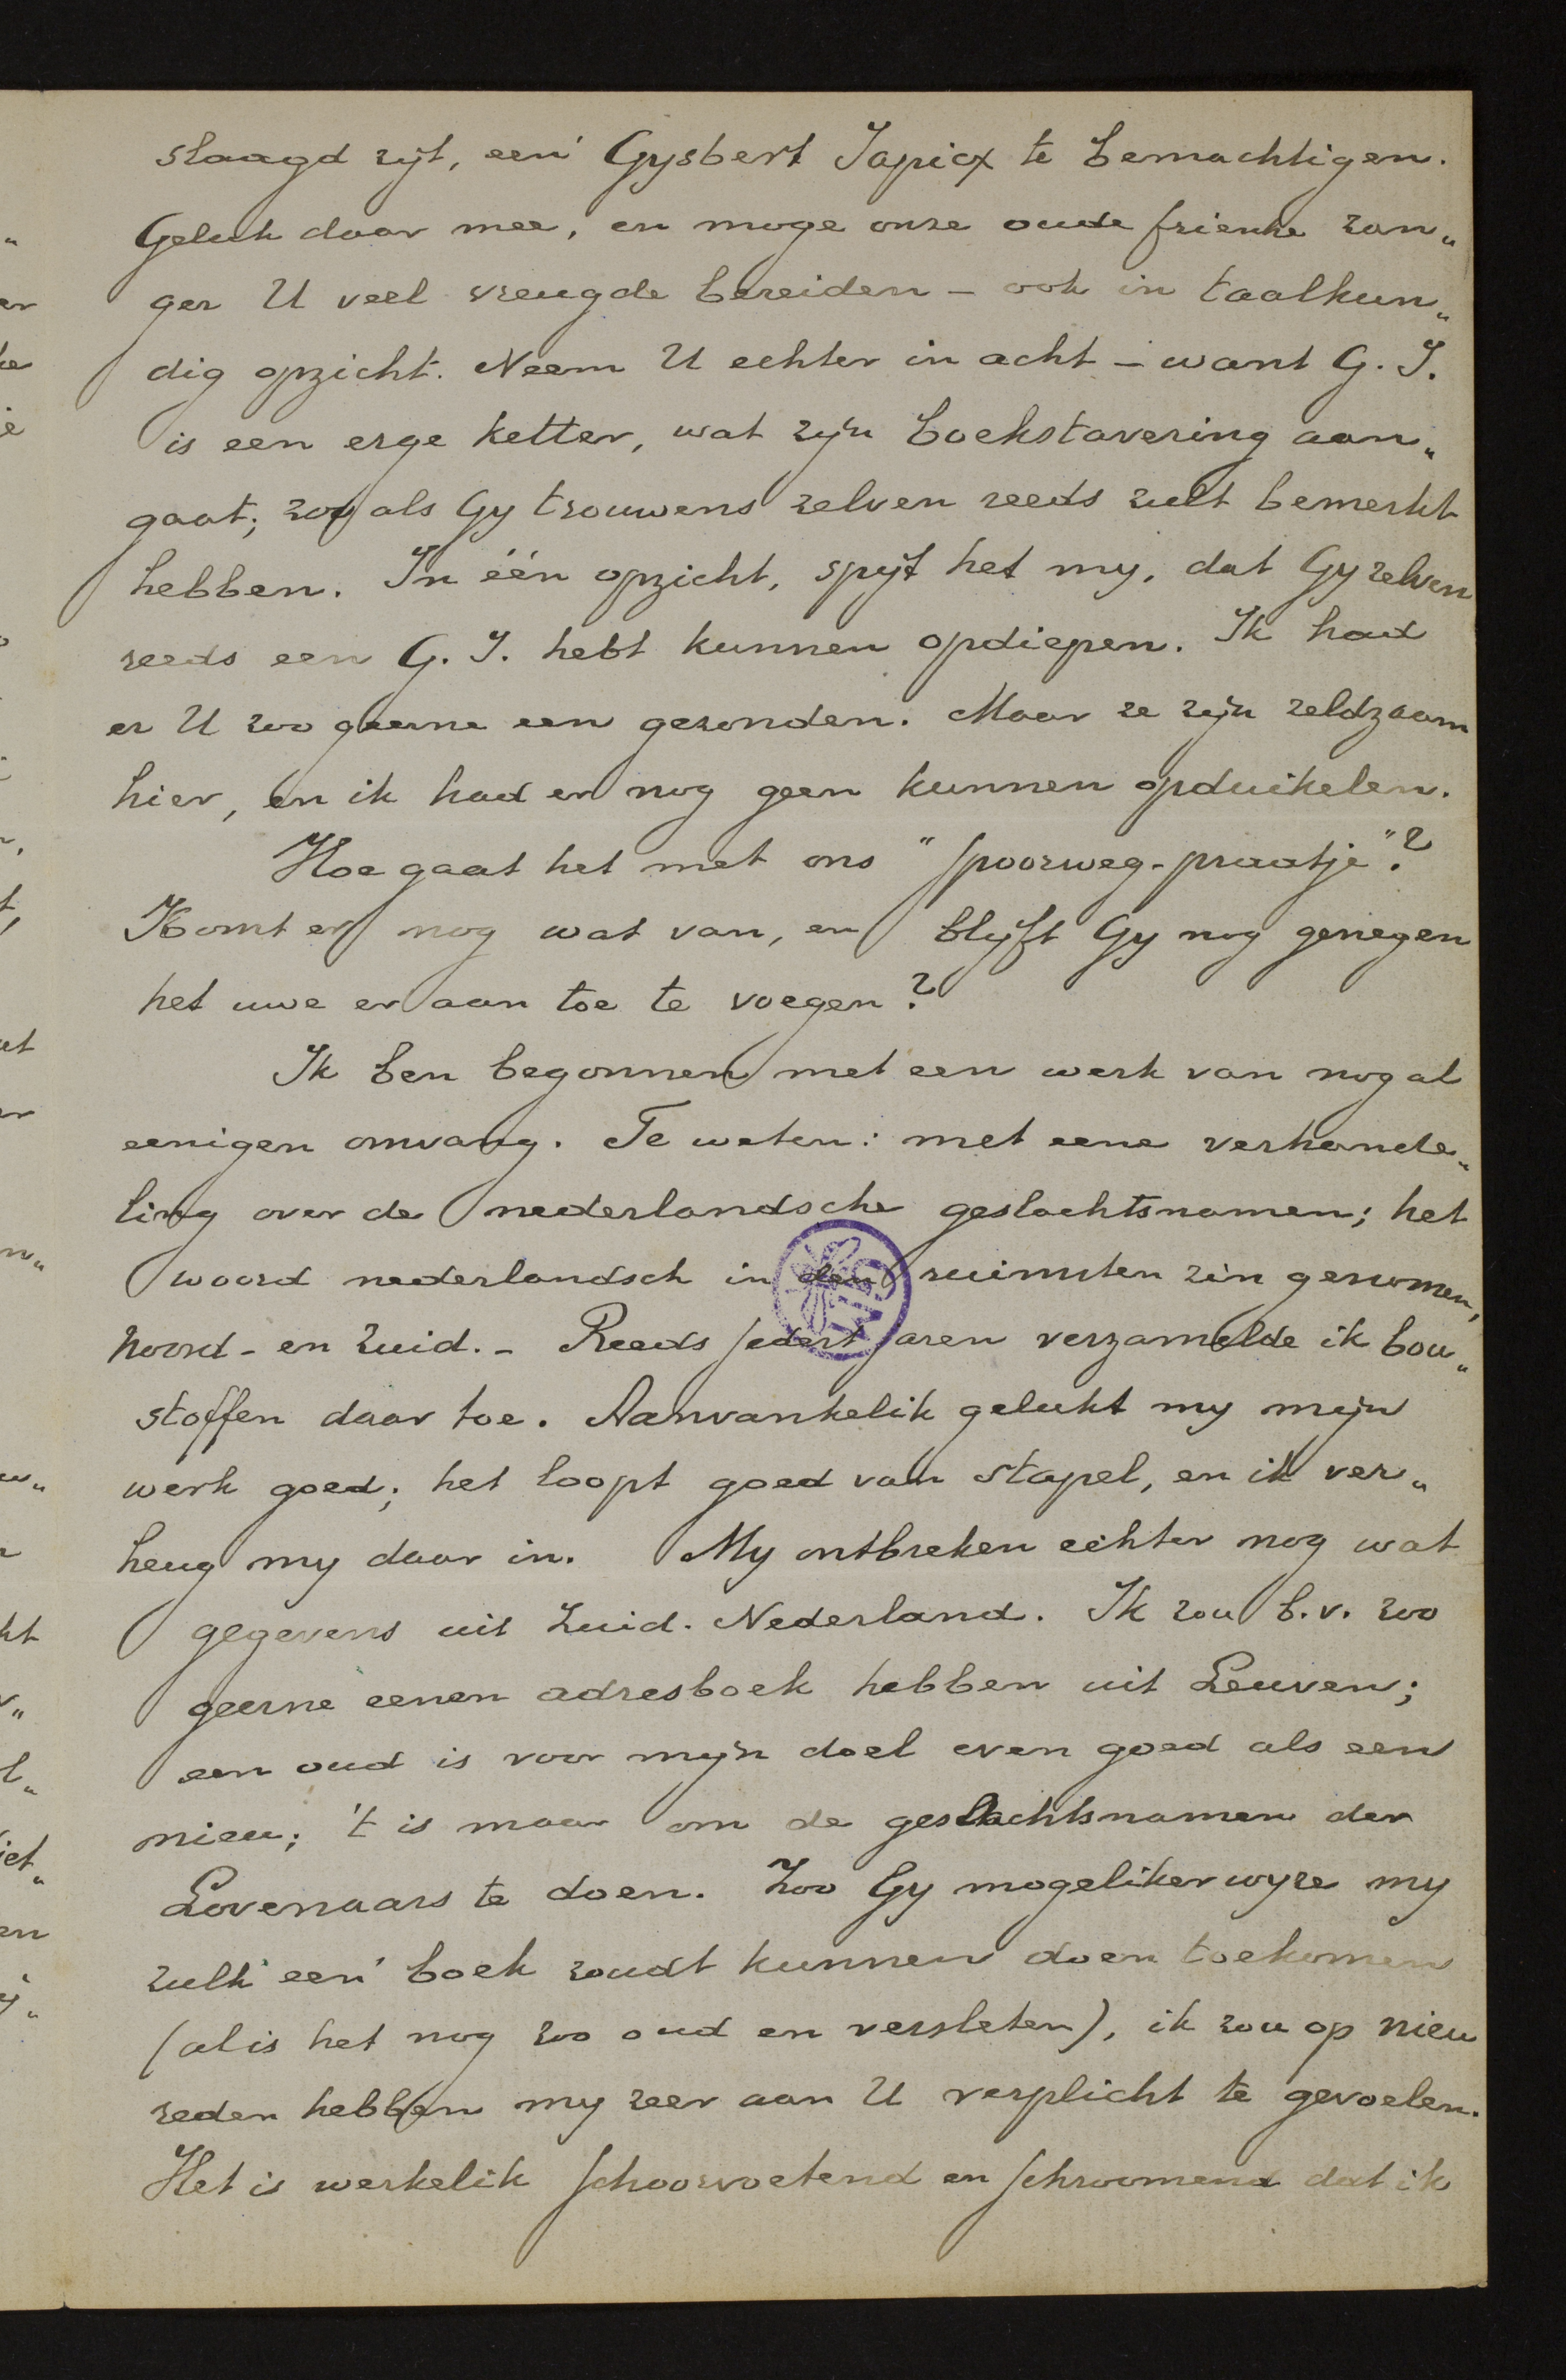 slaagd zijt, een' Gysbert Japicx te bemachtigen.
Geluk daar mee, en moge onze oude friesche zan„
ger U veel vreugde bereiden – ook in taalkun„
dig opzicht. Neem U echter in acht – want G. J.
is een erge ketter, wat zijn boekstavering aan„
gaat; zoo als Gy trouwens zelven reeds zult bemerkt
hebben. In één opzicht, spijt het my, dat Gy zelven
reeds een G. J. hebt kunnen opdiepen. Ik had
er U zoo geerne een gezonden. Maar ze zijn zeldzaam
hier, en ik had er nog geen kunnen opduikelen.
Hoe gaat het met ons "spoorweg-praatje"?
Komt er nog wat van, en blijft Gy nog genegen
het uwe er aan toe te voegen?
Ik ben begonnen met een werk van nog al
eenigen omvang. Te weten: met eene verhande„
ling over de nederlandsche geslachtsnamen; het
woord nederlandsch in den ruimsten zin genomen,
noord- en zuid. – Reeds sedert jaren verzamelde ik bou„
stoffen daar toe. Aanvankelik gelukt my mijn
werk goed; het loopt goed van stapel, en ik ver„
heug my daar in. My ontbreken echter nog wat
gegevens uit Zuid-Nederland. Ik zou b.v. zoo
geerne eenen adresboek hebben uit Leuven;
een oud is voor mijn doel even goed als een
nieu; 't is maar om de geslachtsnamen der
Lovenaars te doen. Zoo Gy mogelikerwyze my
zulk een' boek zoudt kunnen doen toekomen
(al is het nog zoo oud en versleten), ik zou op nieu
reden hebben my zeer aan U verplicht te gevoelen.
Het is werkelik schoorvoetend en schroomend dat ik